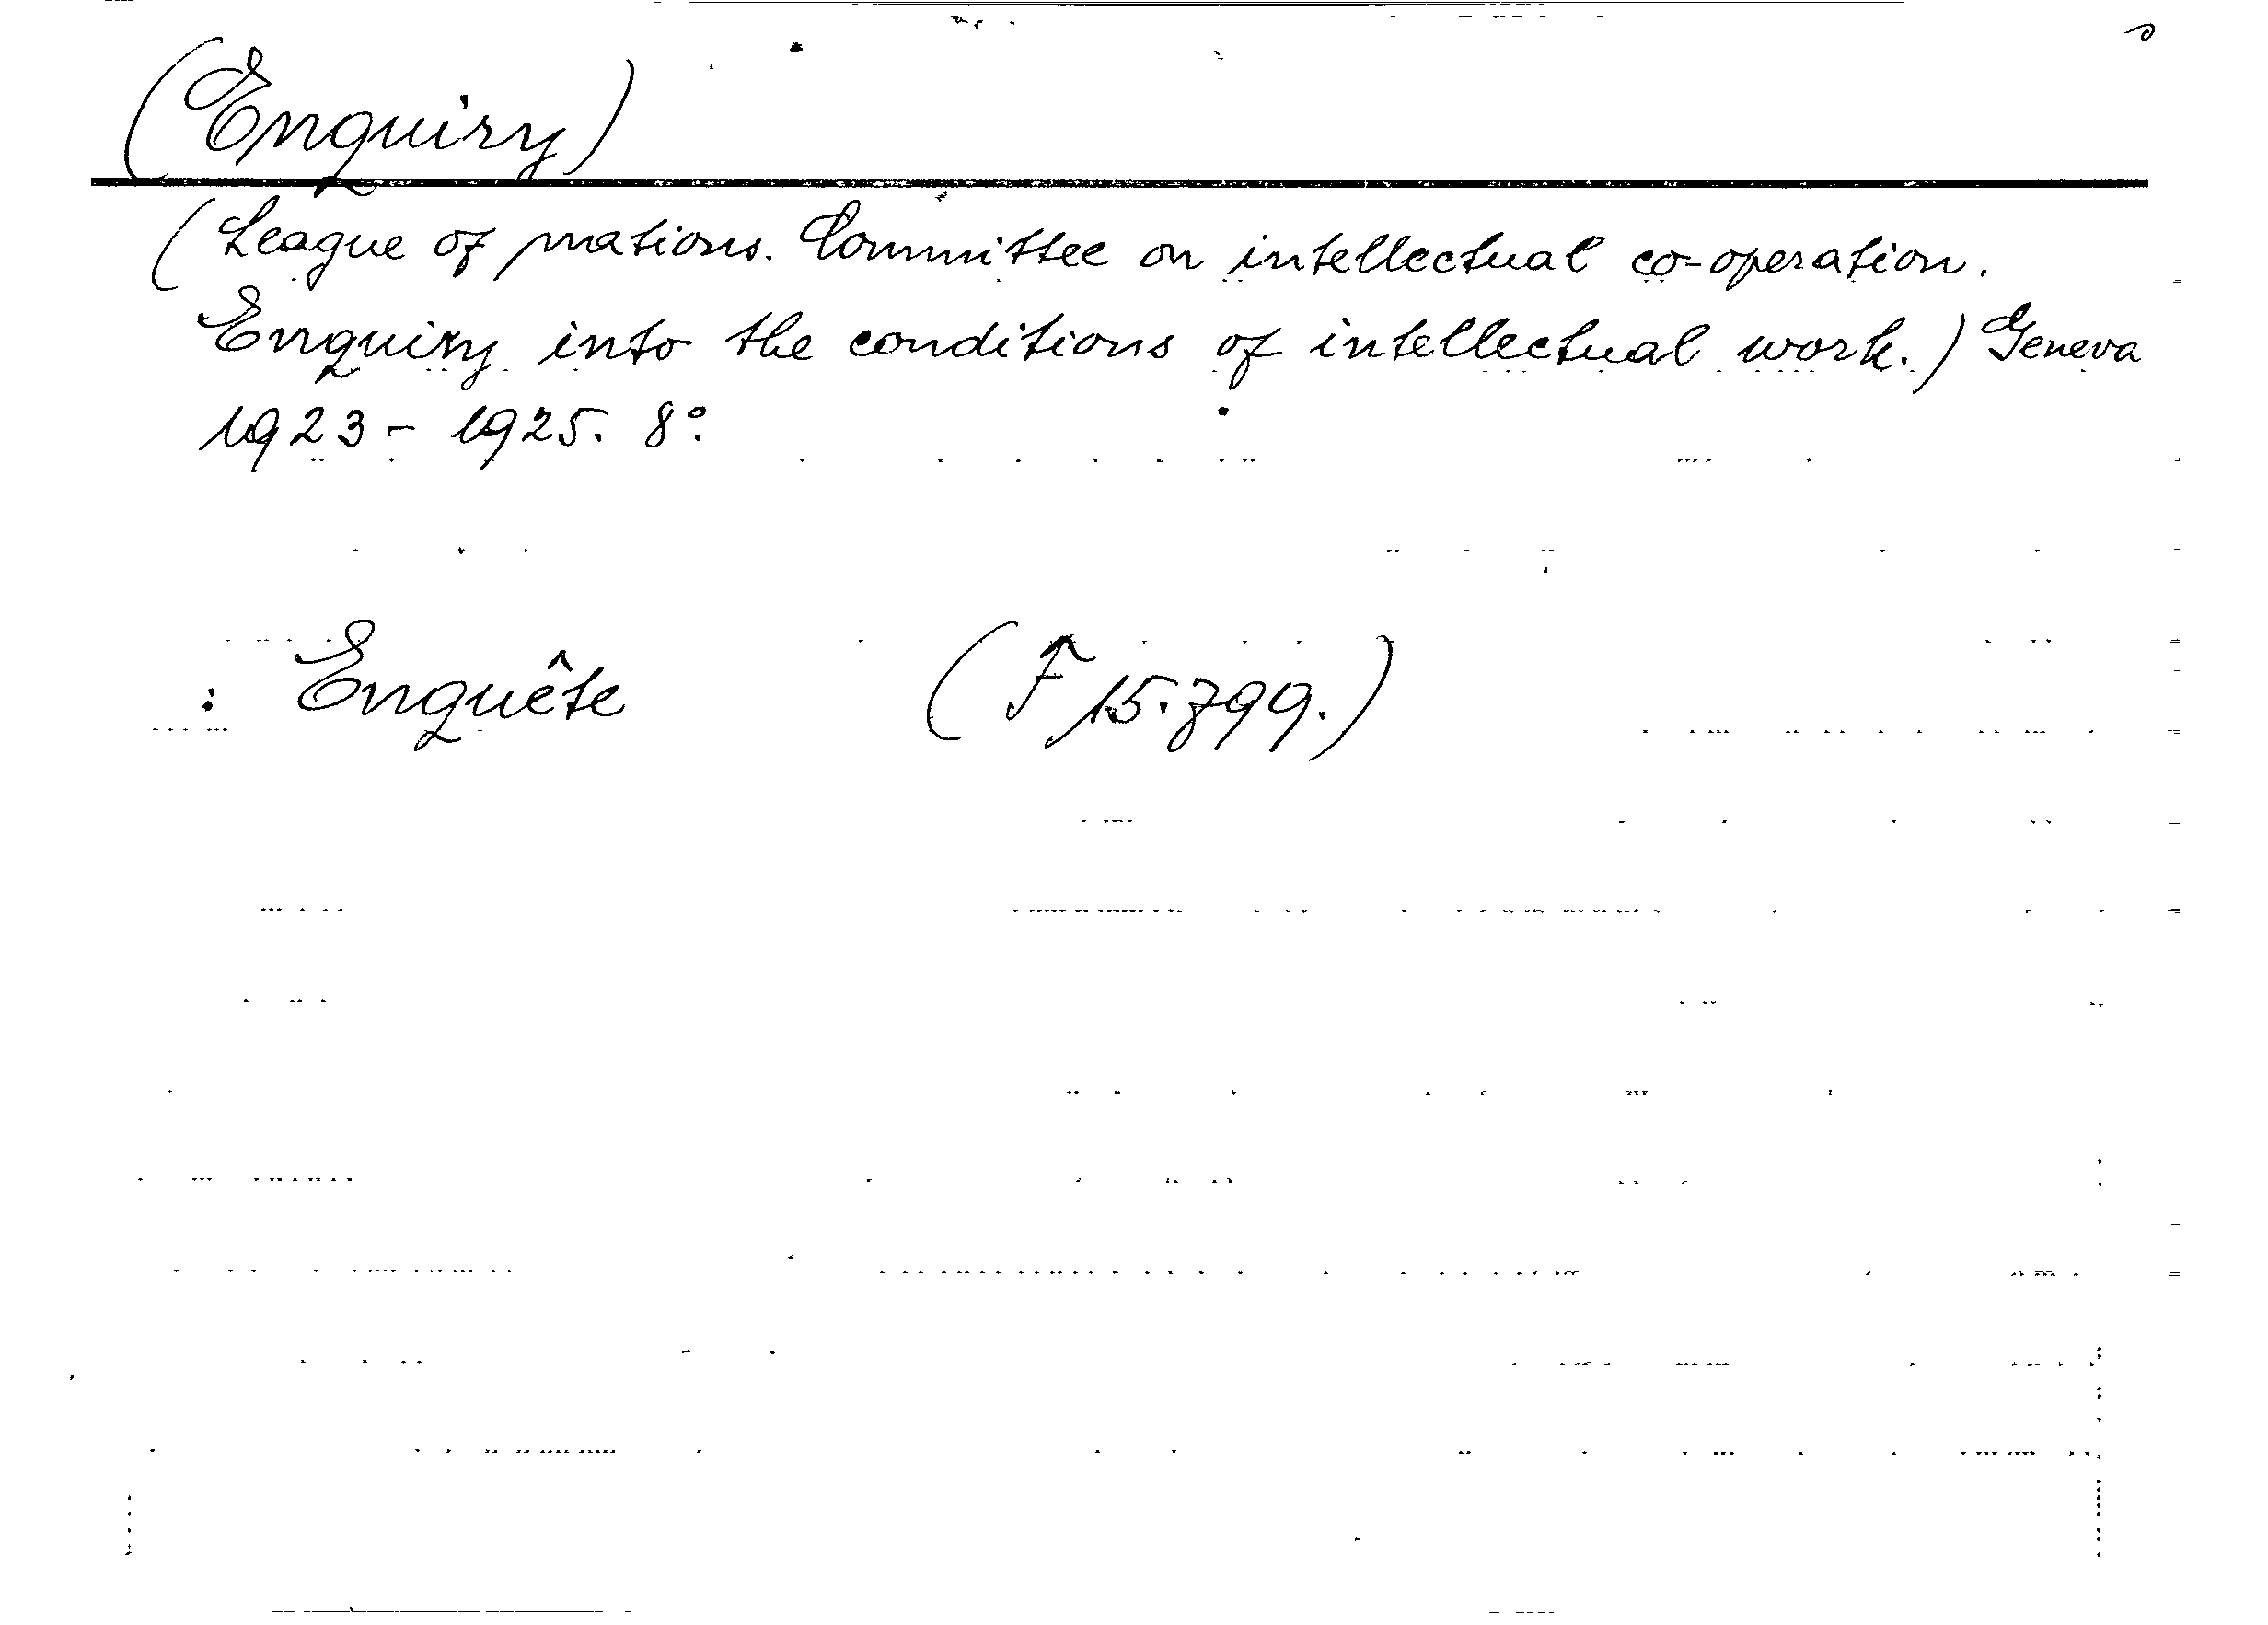 (Enquiry)
(League of nations. Committee on intellectual co-operation.
Enquiry into the conditions of intellectual work.) Geneva
1923 - 1925. 8°.
: Enquête (F 15.799.)